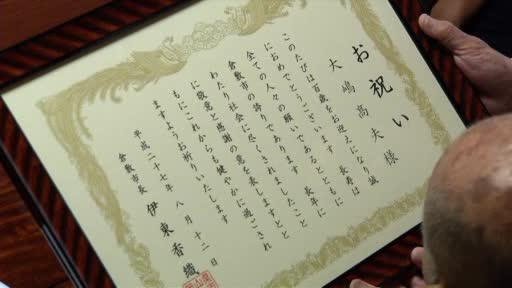 お祝い
大嶋高夫様
このたびは百歳をお迎えになり誠
におめでとうございます 長寿は
全ての人々の願いであるとともに
倉敷市の誇りであります 長年に
わたり社会に尽くされましたこと
に敬意と感謝の意を表しますとと
もにこれからも健やかに過ごされ
ますようお祈りいたします
平成二十七年 八月十二日
倉敷市長 伊東香織